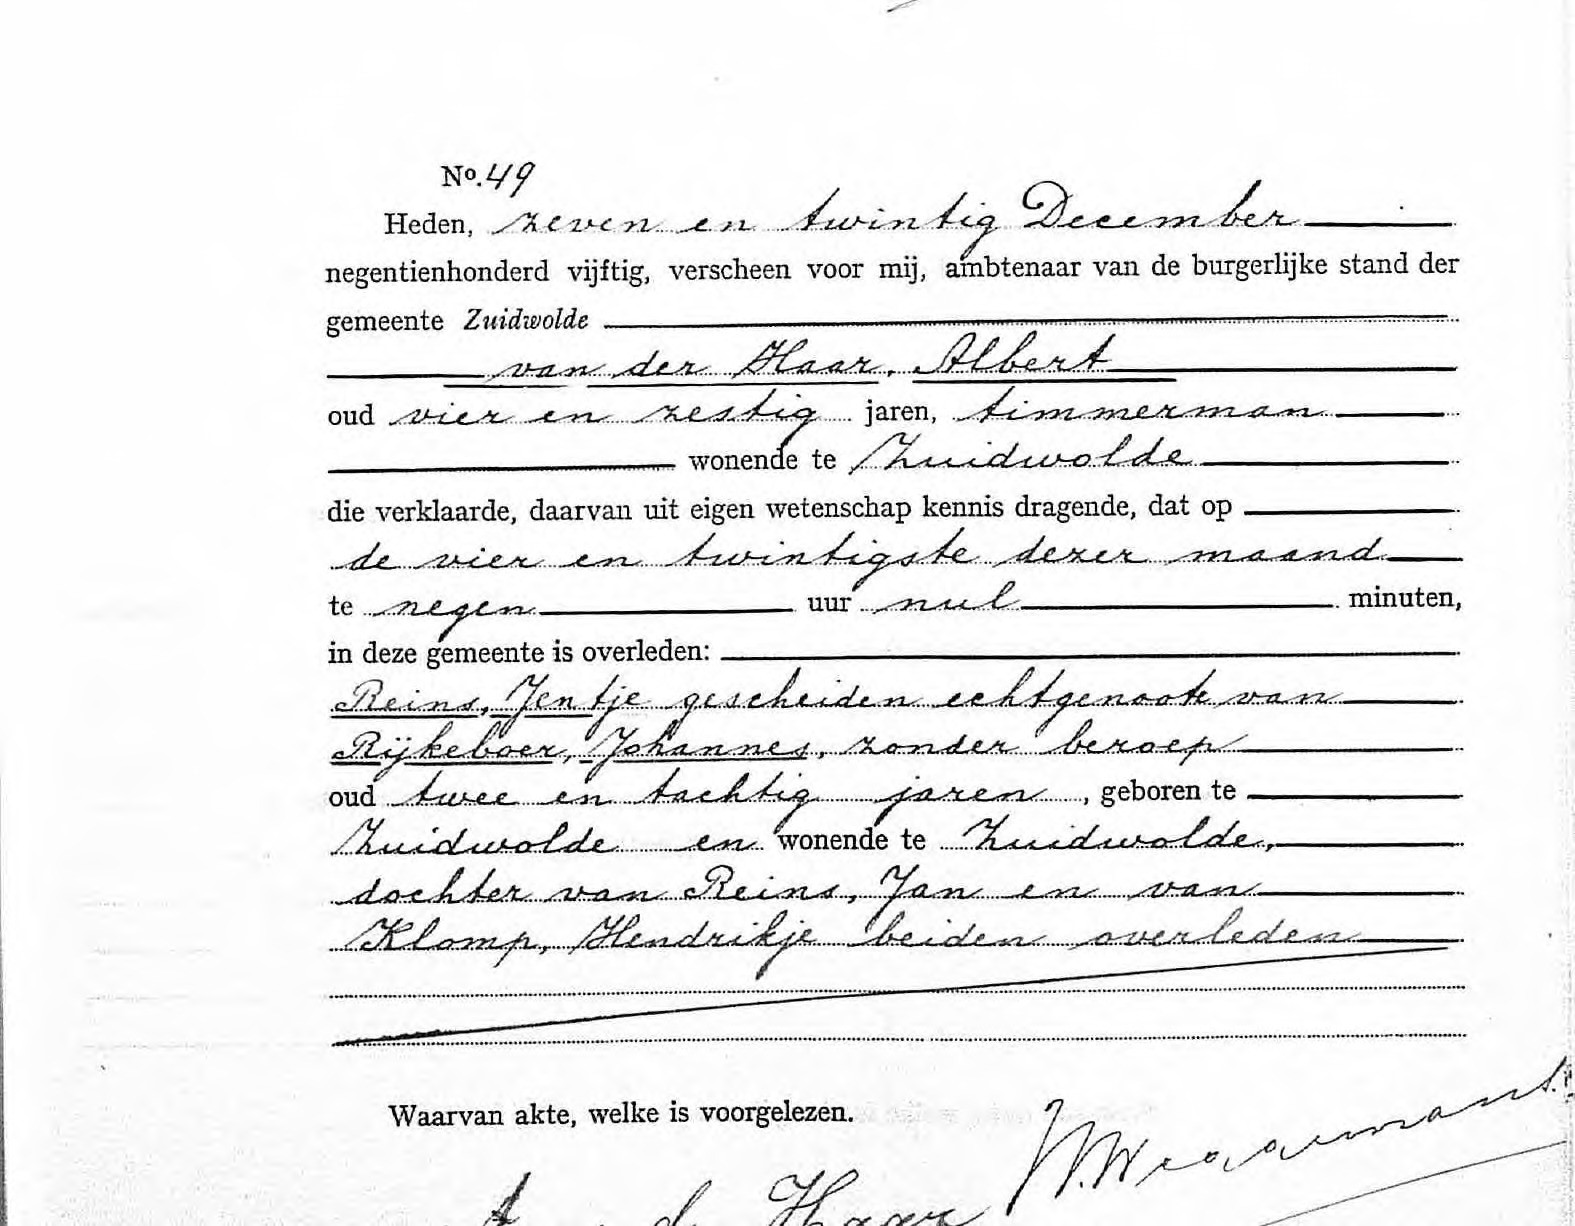 No. 49
Heden, zeven en twintig December
negentienhonderd vijftig, verscheen voor mij, ambtenaar van de burgerlijke stand der
gemeente Zuidwolde
van der Haar, Albert
oud vier en zestig jaren, timmerman
wonende te Zuidwolde
die verklaarde, daarvan uit eigen wetenschap kennis dragende, dat op
de vier en twintigste dezer maand
te negen uur nul minuten,
in deze gemeente is overleden:
Reins, Jentje gescheiden echtgenoote van
Rijkeboer, Johannes, zonder beroep
oud twee en tachtig jaren, geboren te
Zuidwolde en wonende te Zuidwolde,
dochter van Reins, Jan en van
Klomp, Hendrikje beiden overleden
Waarvan akte, welke is voorgelezen.
Haar